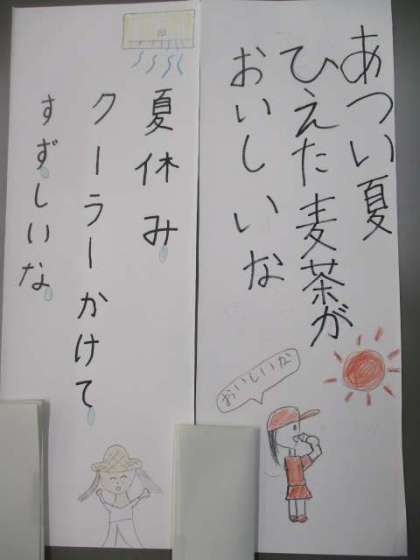 あつい夏
ひえた麦茶が
おいしいな
おいしいな
夏休み
クーラーかけて
すずしいな